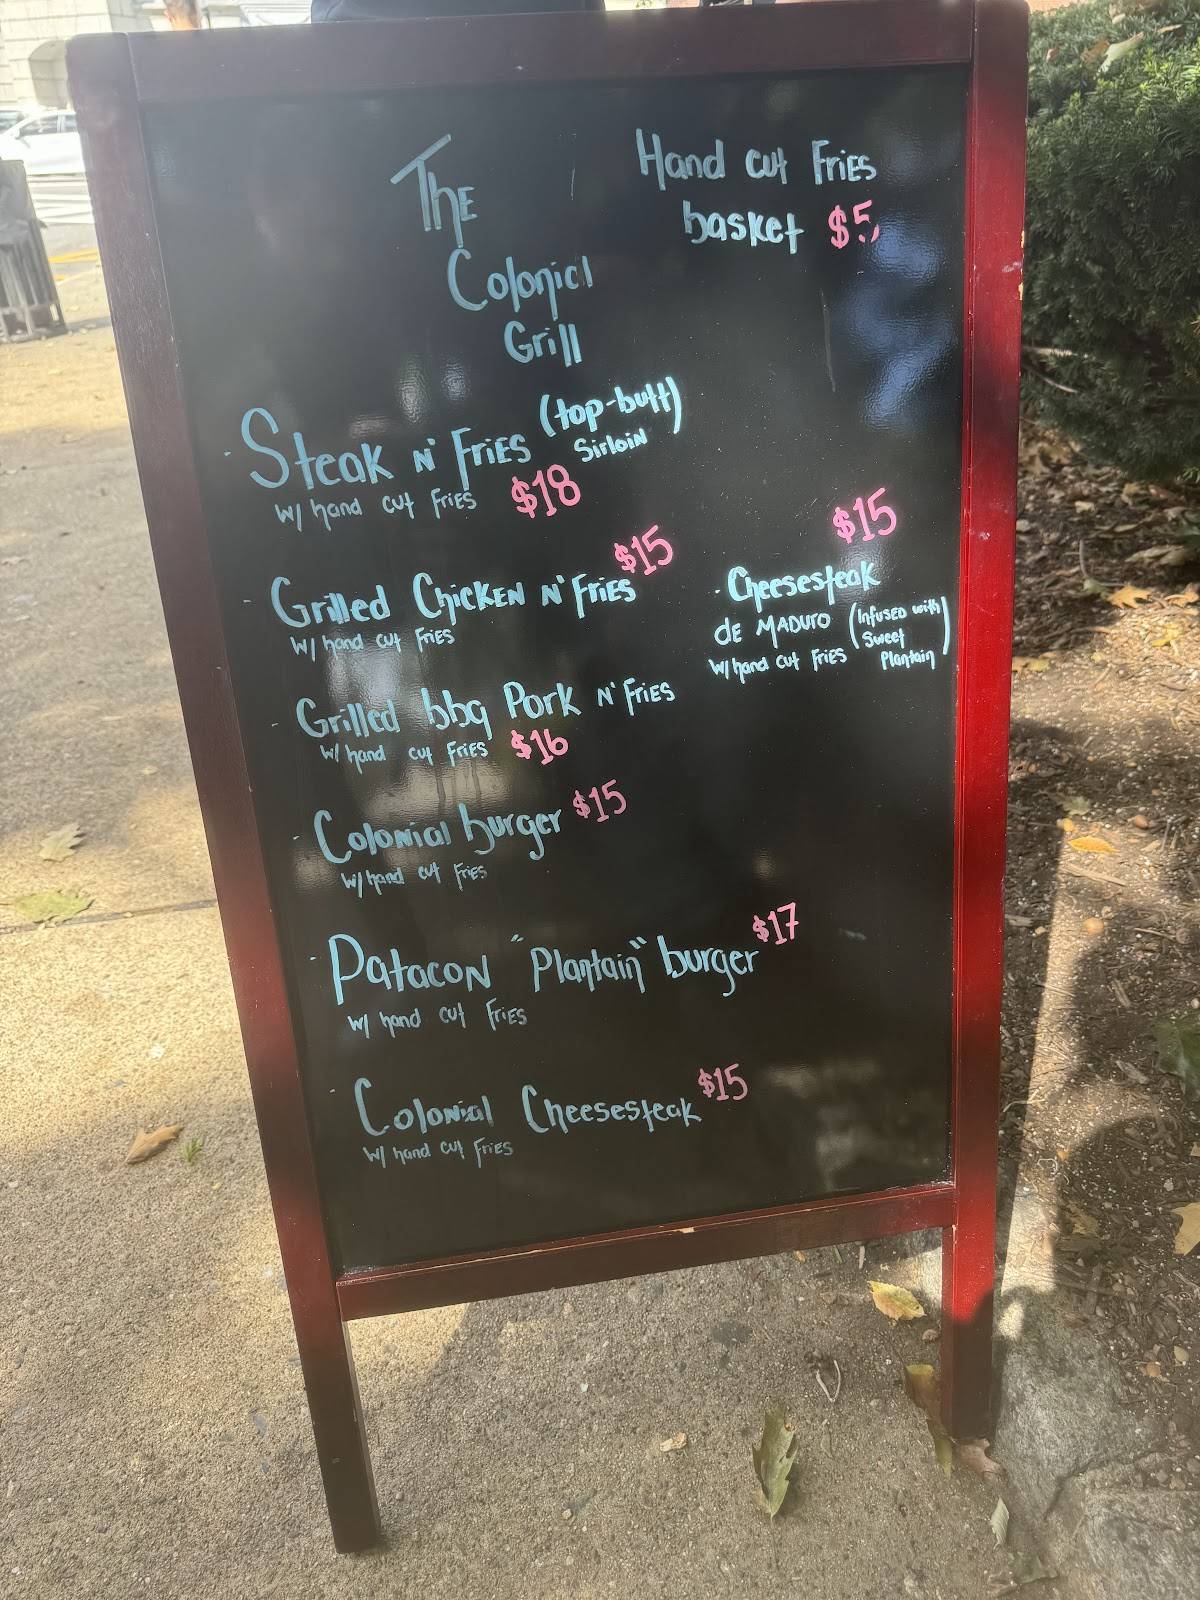 The
Colonial
Grill
Hand cut Fries
basket $5
- Steak N' Fries (top-butt)
Sirloin
w/ hand cut Fries $18
- Grilled Chicken N' Fries $15
w/ hand cut Fries
- Grilled bbq Pork N' Fries
w/ hand cut Fries $16
- Colonial burger $15
w/ hand cut Fries
- Patacon "Plantain" burger $17
w/ hand cut Fries
- Colonial Cheesesteak $15
w/ hand cut Fries
$15
- Cheesesteak
de Maduro (Infused with
Sweet
Plantain)
w/ hand cut Fries